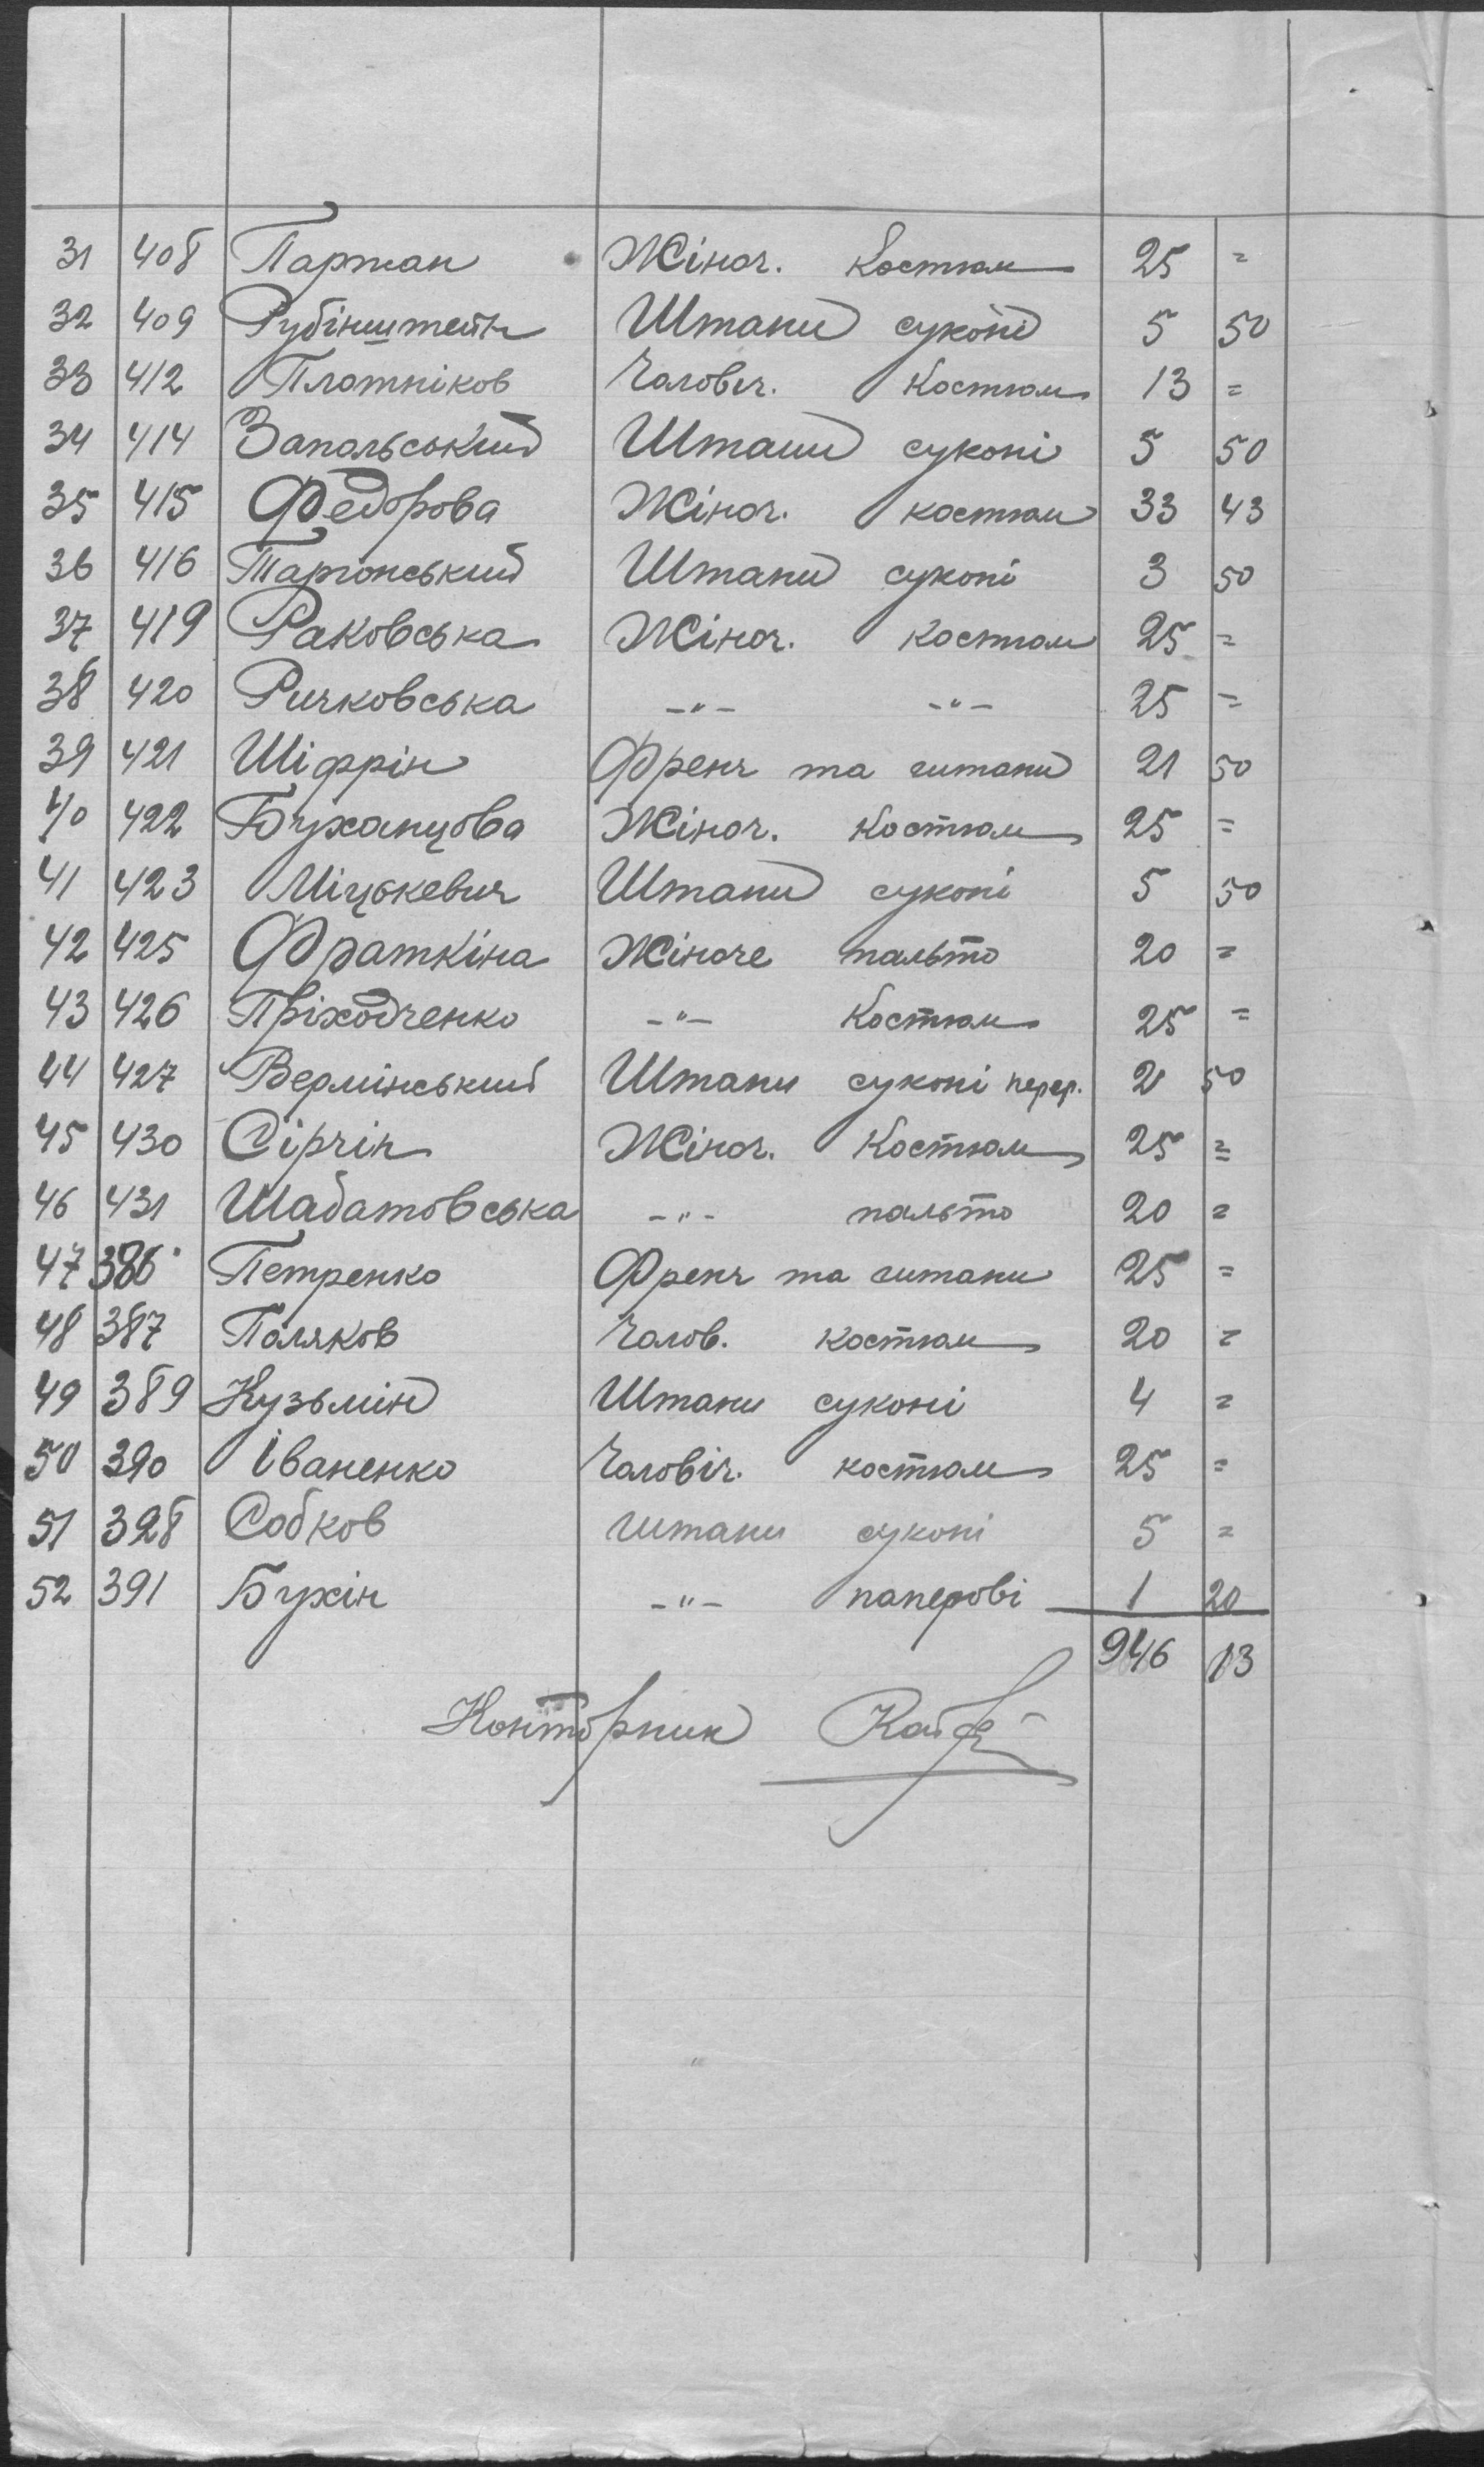 31 408 Партан Жіноч. Костюм 25 =
32 409 Рубінштейн Штани суконі 5 50
33 412 Плотніков Чоловіч. Костюм 13 =
34 414 Запольський Штани суконі 5 50
35 415 Федорова Жіноч. костюм 33 43
36 416 Таргонський Штани суконі 3 50
37 419 Раковська Жіноч. Костюм 25 =
38 420 Ричковська -"- -"- 25 =
39 421 Шіфрін Френч та штани 21 50
40 422 Буханцова Жіноч. Костюм 25 =
41 423 Міцькевич Штани суконі 5 50
42 425 Фраткіна Жіноче пальто 20 =
43 426 Пріходченко -"- Костюм 25 =
44 427 Вермінський Штани суконі перер. 2 50
45 430 Сірчін Жіноч. Костюм 25 =
46 431 Шабатовська -"- пальто 20 =
47 386 Петренко Френч та штани 25 =
48 387 Поляков Чолов. костюм 20 =
49 389 Кузьмін Штани суконі 4 =
50 390 Іваненко Чоловіч. костюм 25 =
51 328 Собков штани суконі 5 =
52 391 Бухін -"- паперові 1 20
946 13
Конторник